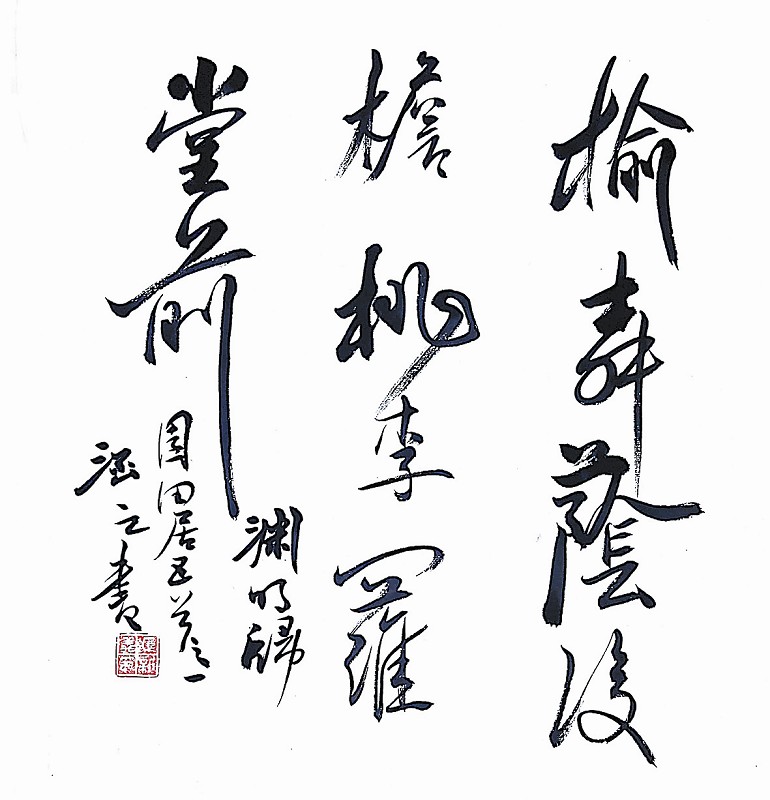 榆柳蔭後
檐桃李羅
堂前
淵明歸
園田居五首之一
涵之書